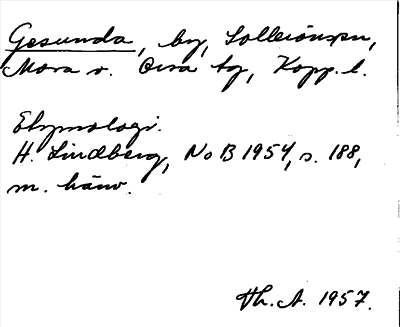 Gesunda, by, Sollerönspn,
Mora o. Orsa tg, Kopp. l.
Etymologi.
H. Lindberg, NoB 1954, s. 188,
m. hänv.
Th. A. 1957.